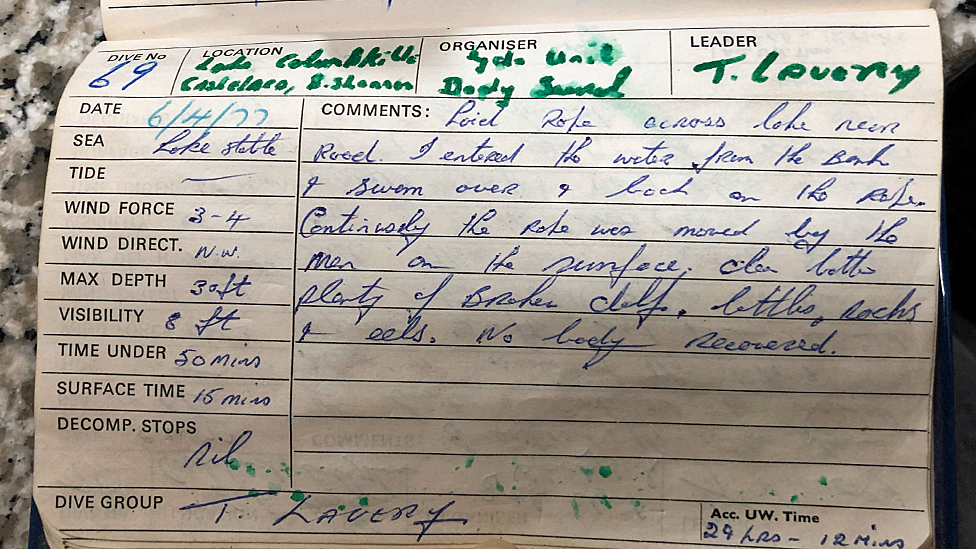 DIVE No 69
LOCATION Lake Columbkille
Castlecard, B.Shannon
ORGANISER Gda Unit
Body Search
LEADER T. LAVERY
DATE 6/4/77
SEA Lake still
TIDE —
WIND FORCE 3-4
WIND DIRECT. N.W.
MAX DEPTH 30ft
VISIBILITY 8 ft
TIME UNDER 50 mins
SURFACE TIME 15 mins
DECOMP. STOPS
nil
COMMENTS: Laid Rope across lake near
Road. I entered the water from the Bank
& swam over & back on the Rope.
Continuously the rope was moved by the
men on the surface, clean bottom
plenty of Broken delf, bottles, rocks
& eels. No body recovered.
DIVE GROUP T LAVERY
Acc. UW. Time
29 HRS - 12 Mins